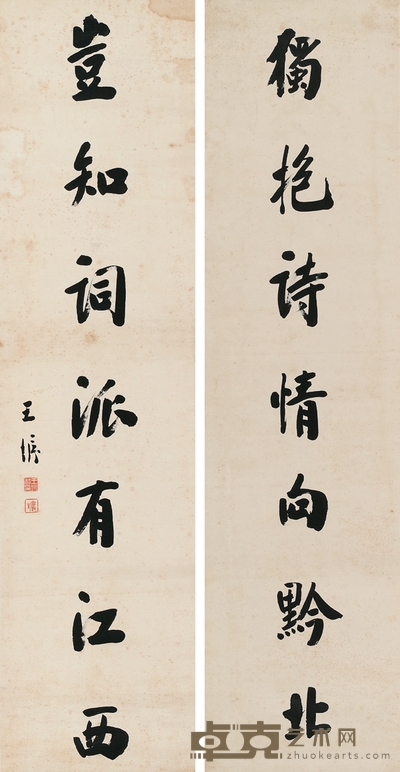 獨抱詩情向黔北
豈知詞派有江西
王
卓克艺术网
zhuokearts.com